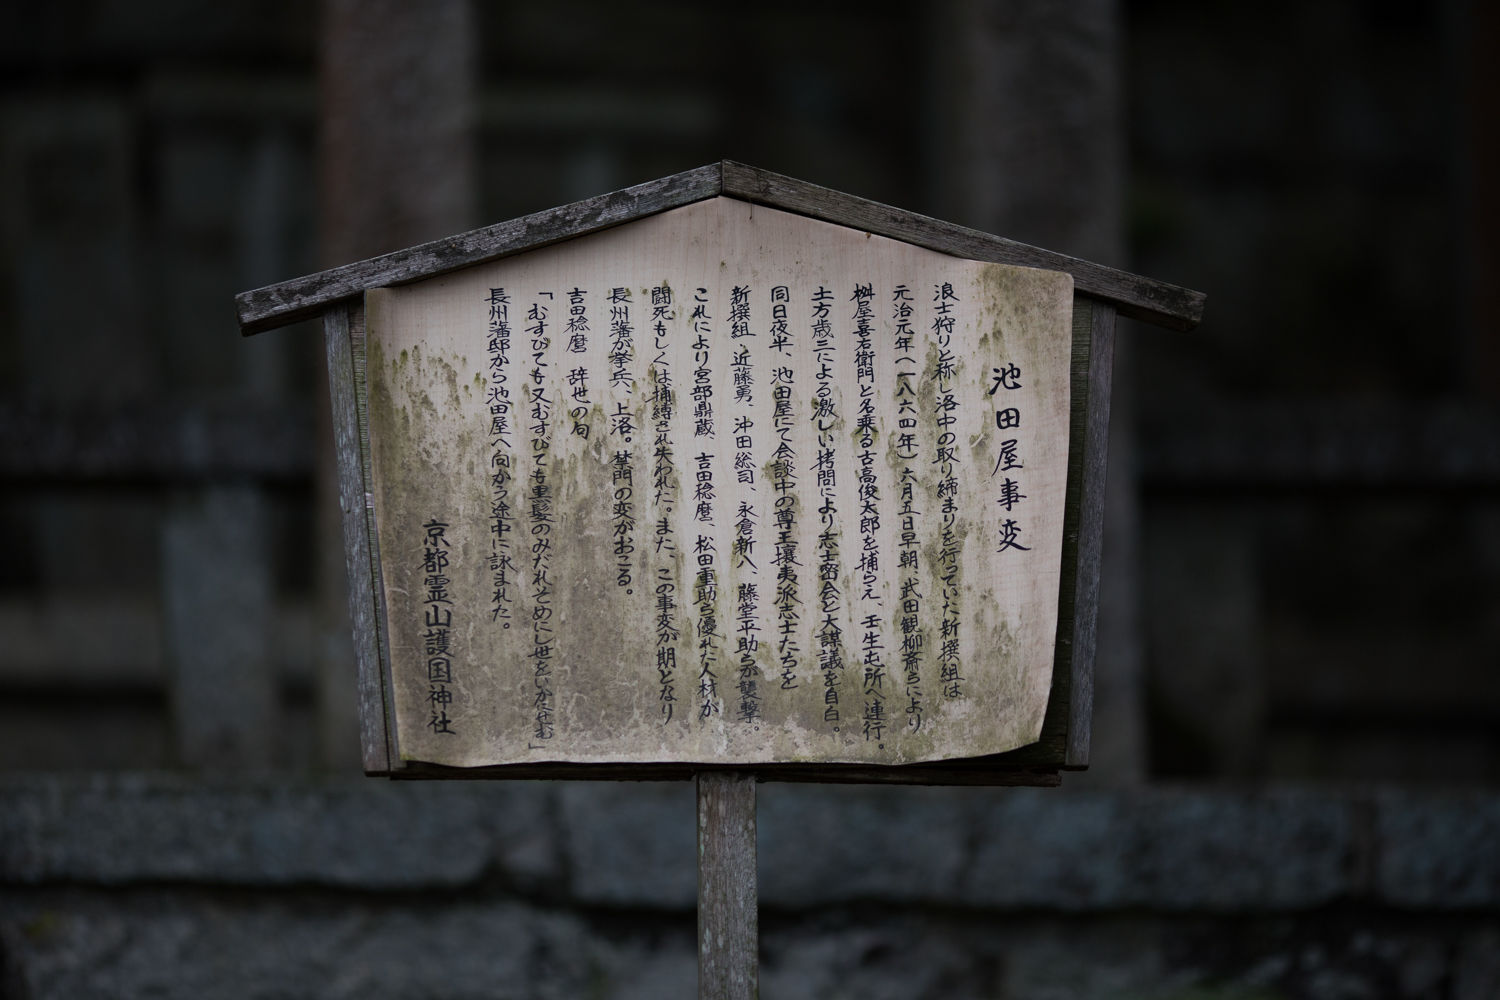 池田屋事変
浪士狩りと称し洛中の取り締まりを行っていた新撰組は
元治元年（一八六四年）六月五日早朝、武田観柳斎らにより
桝屋喜右衛門と名乗る古高俊太郎を捕らえ、壬生屯所へ連行。
土方歳三による激しい拷問により志士密会と大謀議を自白。
同日夜半、池田屋にて会談中の尊王攘夷派志士たちを
新撰組 近藤勇、沖田総司、永倉新八、藤堂平助らが襲撃。
これにより宮部鼎蔵、吉田稔麿、松田重助ら優れた人材が
闘死もしくは捕縛され失われた。また、この事変が期となり
長州藩が挙兵、上洛。禁門の変がおこる。
吉田稔麿 辞世の句
「むすびても又むすびても黒髪のみだれそめにし世をいかにせむ」
長州藩邸から池田屋へ向かう途中に詠まれた。
京都霊山護国神社